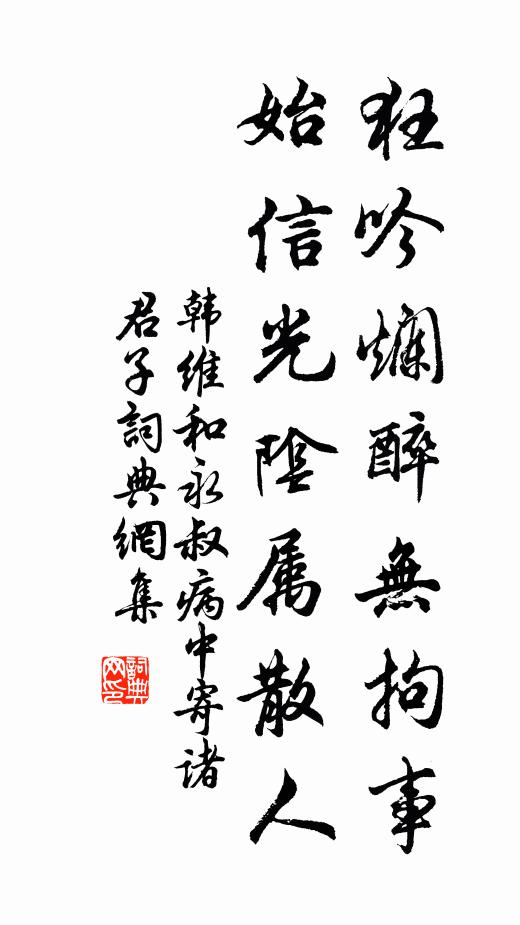 狂吟爛醉無拘事
始信光陰属散人
韩維和永叔病中寄诸
君子詞典網集
詞典網印